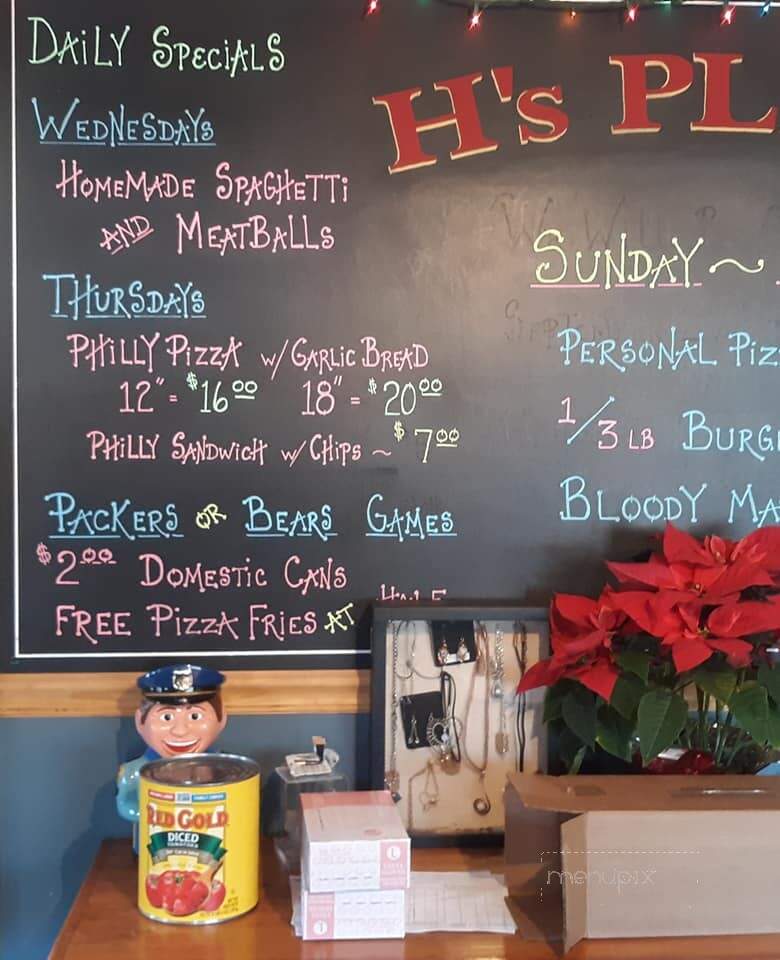 DAILY SPECIALS
H's PL
WEDNESDAYS
HOMEMADE SPAGHETTI
AND MEATBALLS
SUNDAY ~
THURSDAYS
PHILLY PIZZA w/ GARLIC BREAD
PERSONAL PIZ
12" = $16.00 18" = $20.00
1/3 LB BURG
PHILLY SANDWICH w/ CHIPS ~ $7.00
BLOODY MA
PACKERS OR BEARS GAMES
$2.00 DOMESTIC CANS
FREE PIZZA FRIES AT HALF
RED GOLD
DICED
TOMATOES
menupix